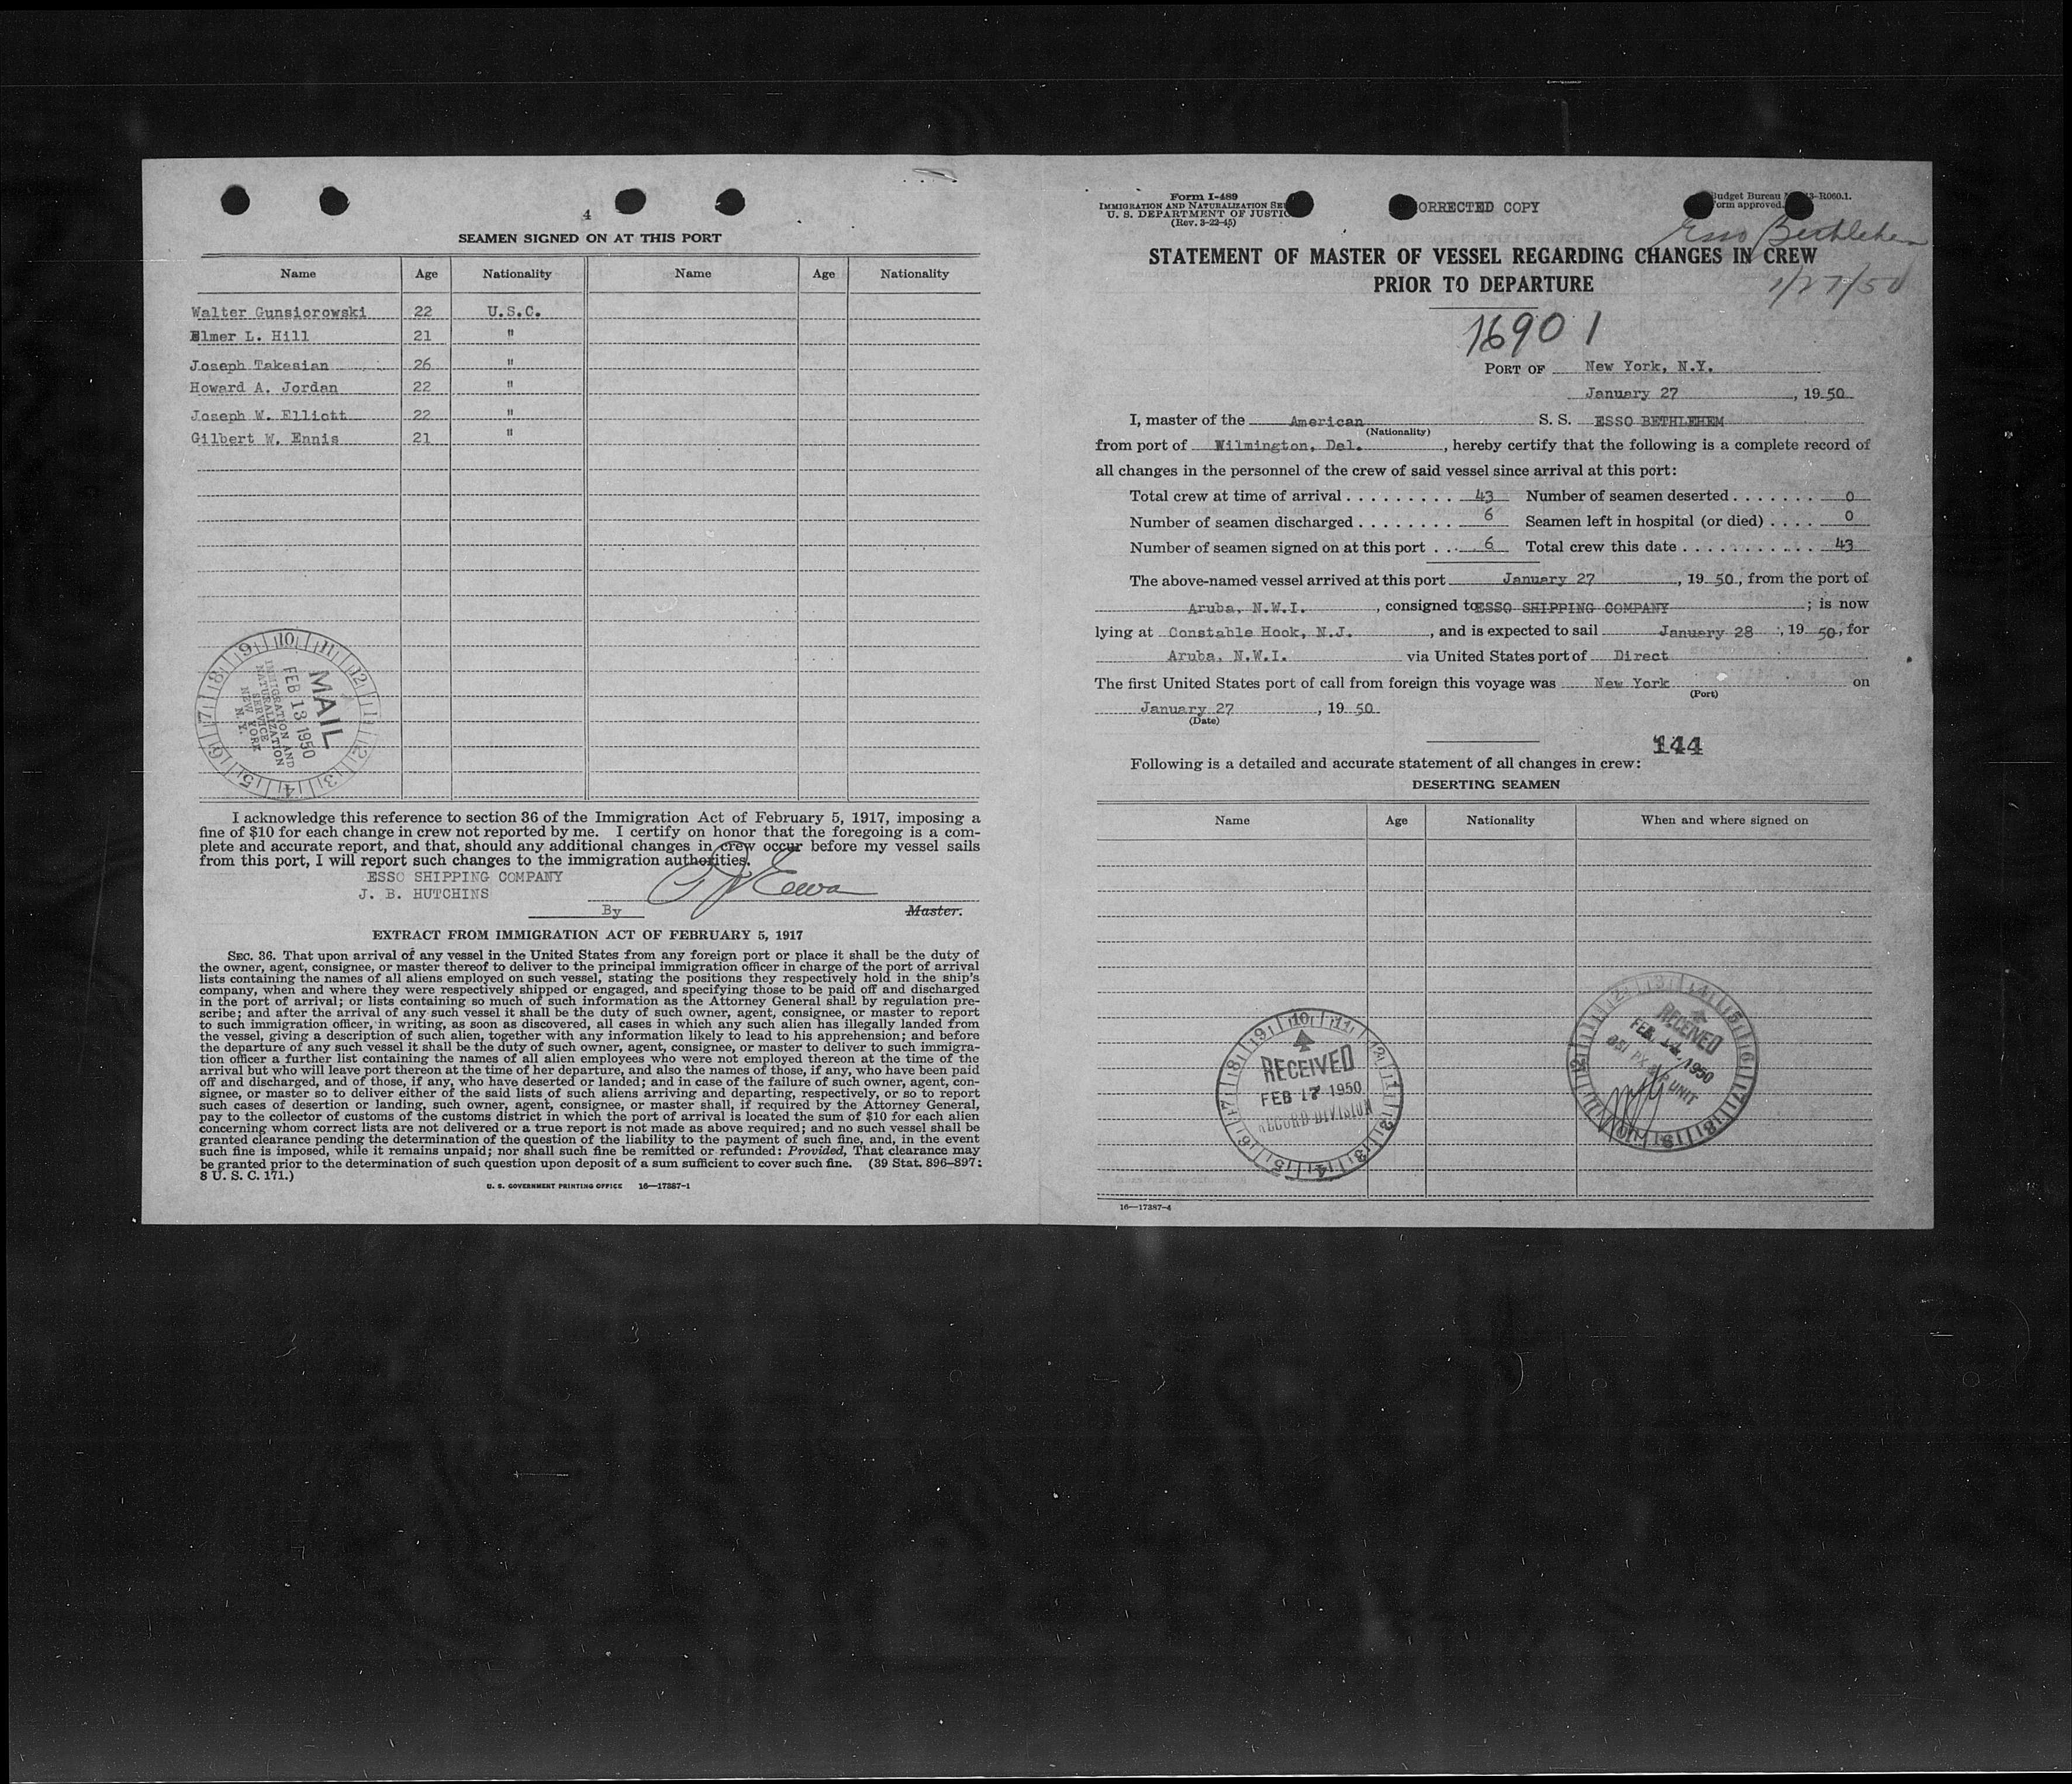 4
SEAMEN SIGNED ON AT THIS PORT
Name Age Nationality Name Age Nationality
Walter Gunsiorowski 22 U.S.C.
Elmer L. Hill 21 "
Joseph Takesian 26 "
Howard A. Jordan 22 "
Joseph W. Elliott 22 "
Gilbert W. Ennis 21 "
MAIL
FEB 13 1950
IMMIGRATION AND
NATURALIZATION
SERVICE
NEW YORK
N.Y.
I acknowledge this reference to section 36 of the Immigration Act of February 5, 1917, imposing a
fine of $10 for each change in crew not reported by me. I certify on honor that the foregoing is a com-
plete and accurate report, and that, should any additional changes in crew occur before my vessel sails
from this port, I will report such changes to the immigration authorities.
ESSO SHIPPING COMPANY
J. B. HUTCHINS
By Master.
EXTRACT FROM IMMIGRATION ACT OF FEBRUARY 5, 1917
SEC. 36. That upon arrival of any vessel in the United States from any foreign port or place it shall be the duty of
the owner, agent, consignee, or master thereof to deliver to the principal immigration officer in charge of the port of arrival
lists containing the names of all aliens employed on such vessel, stating the positions they respectively hold in the ship's
company, when and where they were respectively shipped or engaged, and specifying those to be paid off and discharged
in the port of arrival; or lists containing so much of such information as the Attorney General shall by regulation pre-
scribe; and after the arrival of any such vessel it shall be the duty of such owner, agent, consignee, or master to report
to such immigration officer, in writing, as soon as discovered, all cases in which any such alien has illegally landed from
the vessel, giving a description of such alien, together with any information likely to lead to his apprehension; and before
the departure of any such vessel it shall be the duty of such owner, agent, consignee, or master to deliver to such immigra-
tion officer a further list containing the names of all alien employees who were not employed thereon at the time of the
arrival but who will leave port thereon at the time of her departure, and also the names of those, if any, who have been paid
off and discharged, and of those, if any, who have deserted or landed; and in case of the failure of such owner, agent, con-
signee, or master so to deliver either of the said lists of such aliens arriving and departing, respectively, or so to report
such cases of desertion or landing, such owner, agent, consignee, or master shall, if required by the Attorney General,
pay to the collector of customs of the customs district in which the port of arrival is located the sum of $10 for each alien
concerning whom correct lists are not delivered or a true report is not made as above required; and no such vessel shall be
granted clearance pending the determination of the question of the liability to the payment of such fine, and, in the event
such fine is imposed, while it remains unpaid; nor shall such fine be remitted or refunded: Provided, That clearance may
be granted prior to the determination of such question upon deposit of a sum sufficient to cover such fine. (39 Stat. 896–897;
8 U. S. C. 171.)
U. S. GOVERNMENT PRINTING OFFICE 16—17387-1
Form I-489
IMMIGRATION AND NATURALIZATION SE
U. S. DEPARTMENT OF JUSTIC
(Rev. 3-22-45)
ORRECTED COPY
Budget Bureau 3-R060.1.
form approved.
Esso Bethlehem
1/27/50
STATEMENT OF MASTER OF VESSEL REGARDING CHANGES IN CREW
PRIOR TO DEPARTURE
16901
PORT OF New York, N.Y.
January 27, 1950
I, master of the American S. S. ESSO BETHLEHEM
(Nationality)
from port of Wilmington, Del., hereby certify that the following is a complete record of
all changes in the personnel of the crew of said vessel since arrival at this port:
Total crew at time of arrival . . . . . . . . . 43 Number of seamen deserted . . . . . . . 0
Number of seamen discharged . . . . . . . . 6 Seamen left in hospital (or died) . . . . 0
Number of seamen signed on at this port . . . 6 Total crew this date . . . . . . . . . . . 43
The above-named vessel arrived at this port January 27, 1950, from the port of
Aruba, N.W.I., consigned to ESSO SHIPPING COMPANY; is now
lying at Constable Hook, N.J., and is expected to sail January 28, 1950, for
Aruba, N.W.I. via United States port of Direct
The first United States port of call from foreign this voyage was New York on
(Port)
January 27, 1950
(Date)
144
Following is a detailed and accurate statement of all changes in crew:
DESERTING SEAMEN
Name Age Nationality When and where signed on
RECEIVED
FEB 17 1950
RECORD DIVISION
RECEIVED
FEB 1950
UNIT
16—17387-4